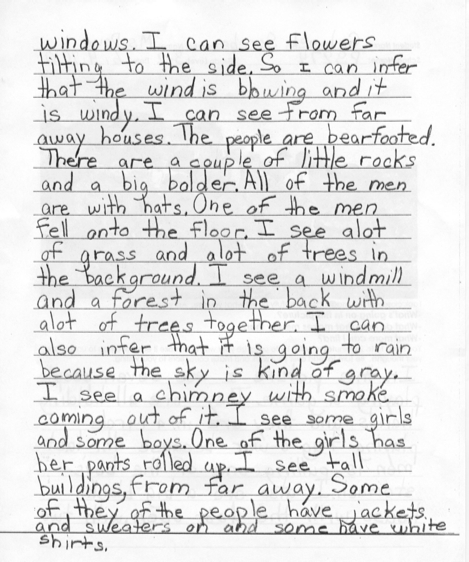 windows. I can see flowers
tilting to the side. So I can infer
that the wind is blowing and it
is windy. I can see from far
away houses. The people are bearfooted.
There are a couple of little rocks
and a big bolder. All of the men
are with hats. One of the men
fell onto the floor. I see alot
of grass and alot of trees in
the background. I see a windmill
and a forest in the back with
alot of trees together. I can
also infer that it is going to rain
because the sky is kind of gray.
I see a chimney with smoke
coming out of it. I see some girls
and some boys. One of the girls has
her pants rolled up. I see tall
buildings, from far away. Some
of they of the people have jackets
and sweaters on and some have white
shirts.